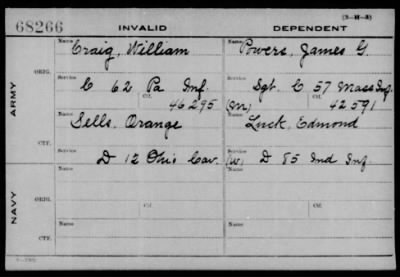 (3-H-3)
68266 INVALID DEPENDENT
Name Craig, William Name Powers, James G.
ARMY
ORIG. Service C 62 Pa Inf. Service Sgt. C 57 Mass Inf.
Ctf. 46295 (M) Ctf. 42591
Name Sells, Orange Name Luck, Edmond
CTF. Service D 12 Ohio Cav. Service (W) D 85 Ind Inf.
NAVY
Name Name
ORIG. Service Ctf. Service Ctf.
Name Name
CTF. Service Service